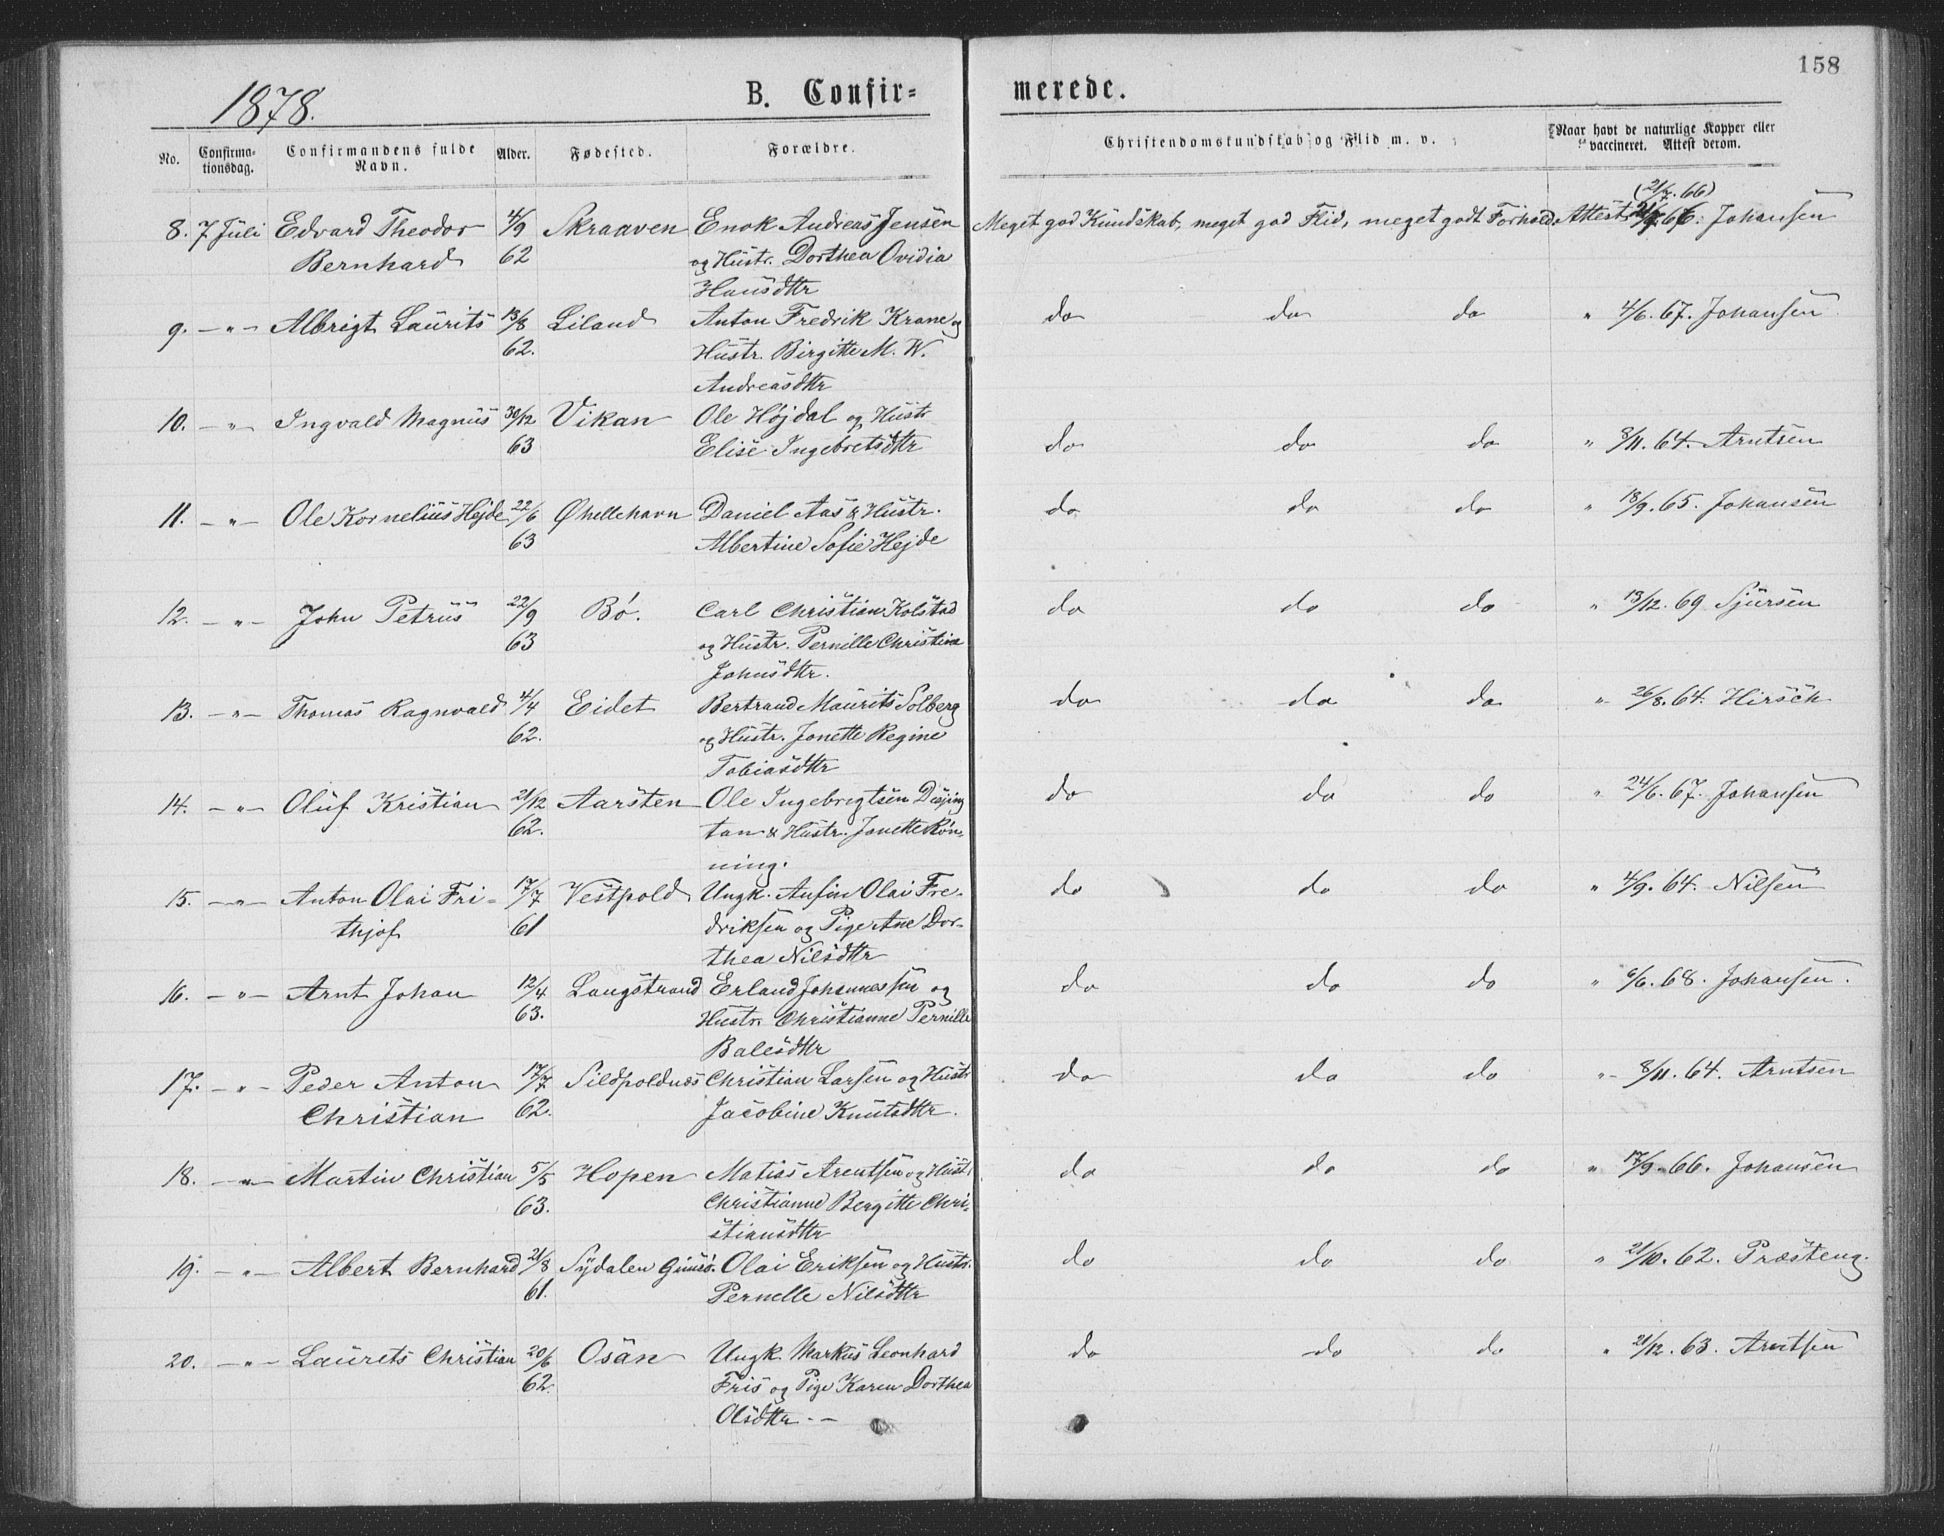 158
1878.
B. Confir- merede.
No. Confirma-tionsdag. Confirmandens fulde Navn. Alder. Fødested. Forældre. Christendomskundskab og Flid m. v. Naar havt de naturlige Kopper eller vaccineret. Attest derom.
(21/7. 66)
8. 7 Juli Edvard Theodor 4/9 Skraaven Enok Andreas Jensen Meget god Kundskab, meget god Flid, meget godt Forhold. Attest 66. Johansen
Bernhard 62 og Hustr. Dorthea Ovidia
Hansdttr
9. —"— Albrigt Laurits 13/8 Liland Anton Fredrik Krane og do do do " 4/6. 67. Johansen
62. Hustr. Birgitte M. W.
Andreasdttr
10. —"— Ingvald Magnus 30/12 Vikan Ole Højdal og Hustr
63 Elise Ingebretsdttr do do do " 8/11. 64. Arntsen
11. —"— Ole Kornelius Hejde 22/6 Øhellehavn Daniel Aas & Hustr. do do do " 18/9. 65. Johansen
63 Albertine Sofie Hejde
12. —"— John Petrus 22/9 Bø. Carl Christian Kolstad do do do " 13/12. 69 Sjursen
63 og Hustr. Pernille Christina
Johnsdttr.
13. —"— Thomas Ragnvald 4/4 Eidet Bertrand Maurits Solberg do do do " 26/8. 64. Hirsch
62. og Hustr. Jonette Regine
Tobiasdttr
14. —"— Oluf Kristian 21/12 Aarsten Ole Ingebrigtsen do do do " 24/6. 67. Johansen
62. tan & Hustr. Jonette Røn-
ning.
15. —"— Anton Olai Fri- 17/7 Vestpold Ungk. Anfin Olai Fre- do do do " 4/9. 64. Nilsen
thjof 61 driksen og Pige Ane Dor-
thea Nilsdttr
16. —"— Arnt Johan 12/4 Langstrand Erland Johannessen og do do do " 6/6. 68. Johansen.
63. Hustr. Christianne Pernille
Balesdttr
17. —"— Peder Anton 17/7 Sildpoldnes Christian Larsen og Hustr do do do " 8/11. 64. Arntsen
Christian 62. Jacobine Knutsdttr.
18. —"— Martin Christian 5/5 Hopen Matias Arentsen og Hustr. do do do " 17/9. 66. Johansen
63. Christianne Bergitte Chri-
stiansdttr
19. —"— Albert Bernhard 21/8 Sydalen Gimsø. Olai Eriksen og Hustr. do do do " 21/10. 62. Præsteng.
61. Pernelle Nilsdttr
20. —"— Laurets Christian 20/6 Osan Ungk Markus Leonhard do do do " 21/12. 63. Arntsen
62. Fris og Pige Karen Dorthea
Olsdttr. —